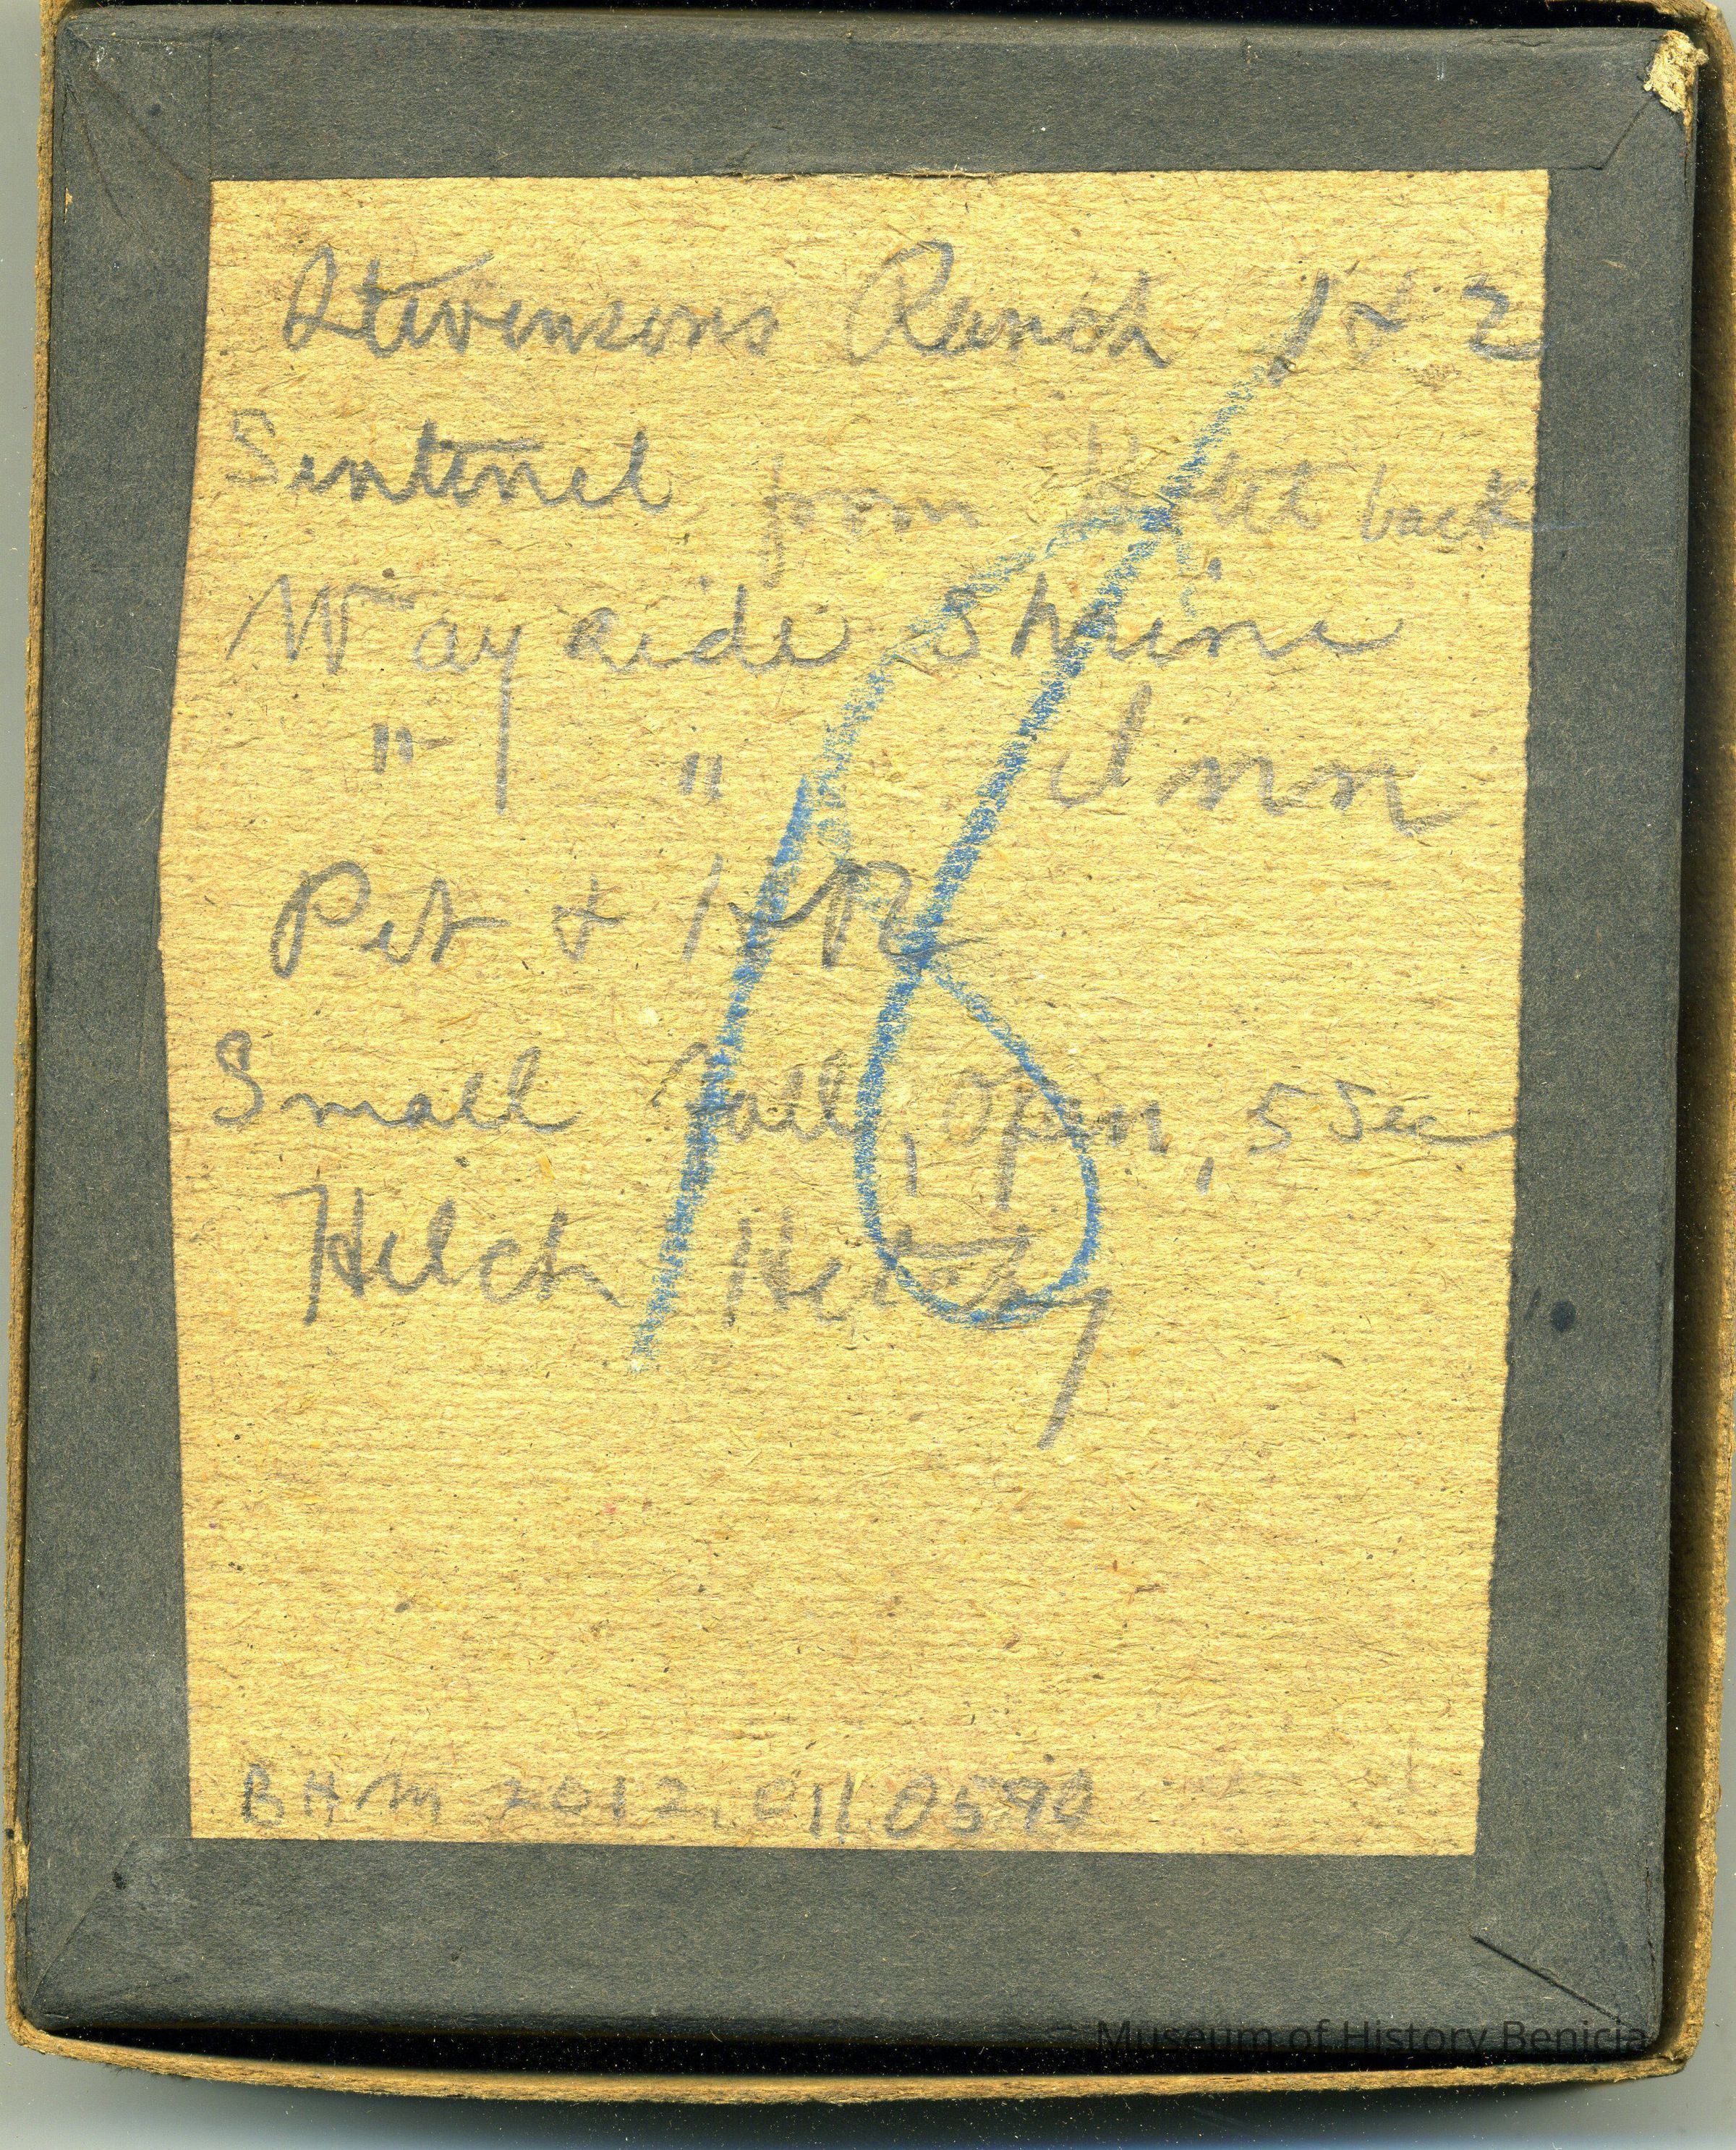 Stevensons Ranch 1 & 2
Sentinel from back
Way side Shrine
" " Inn
Pet &
Small Fall, Open, 5 Sec
Hetch Hetchy
18
BHM 2012.011.0590
Museum of History Benicia